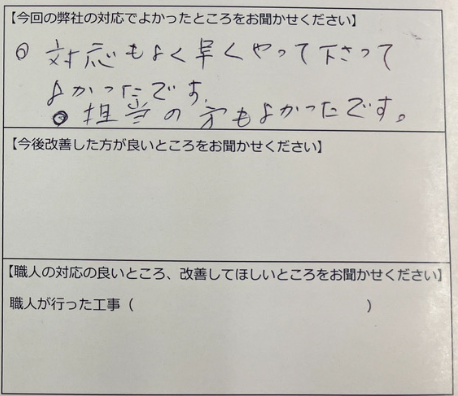 【今回の弊社の対応でよかったところをお聞かせください】
◎ 対応もよく早くやって下さって
よかったです。
◎ 担当の方もよかったです。
【今後改善した方が良いところをお聞かせください】
【職人の対応の良いところ、改善してほしいところをお聞かせください】
職人が行った工事（　　　　　　　　　　　　　　　　　　）